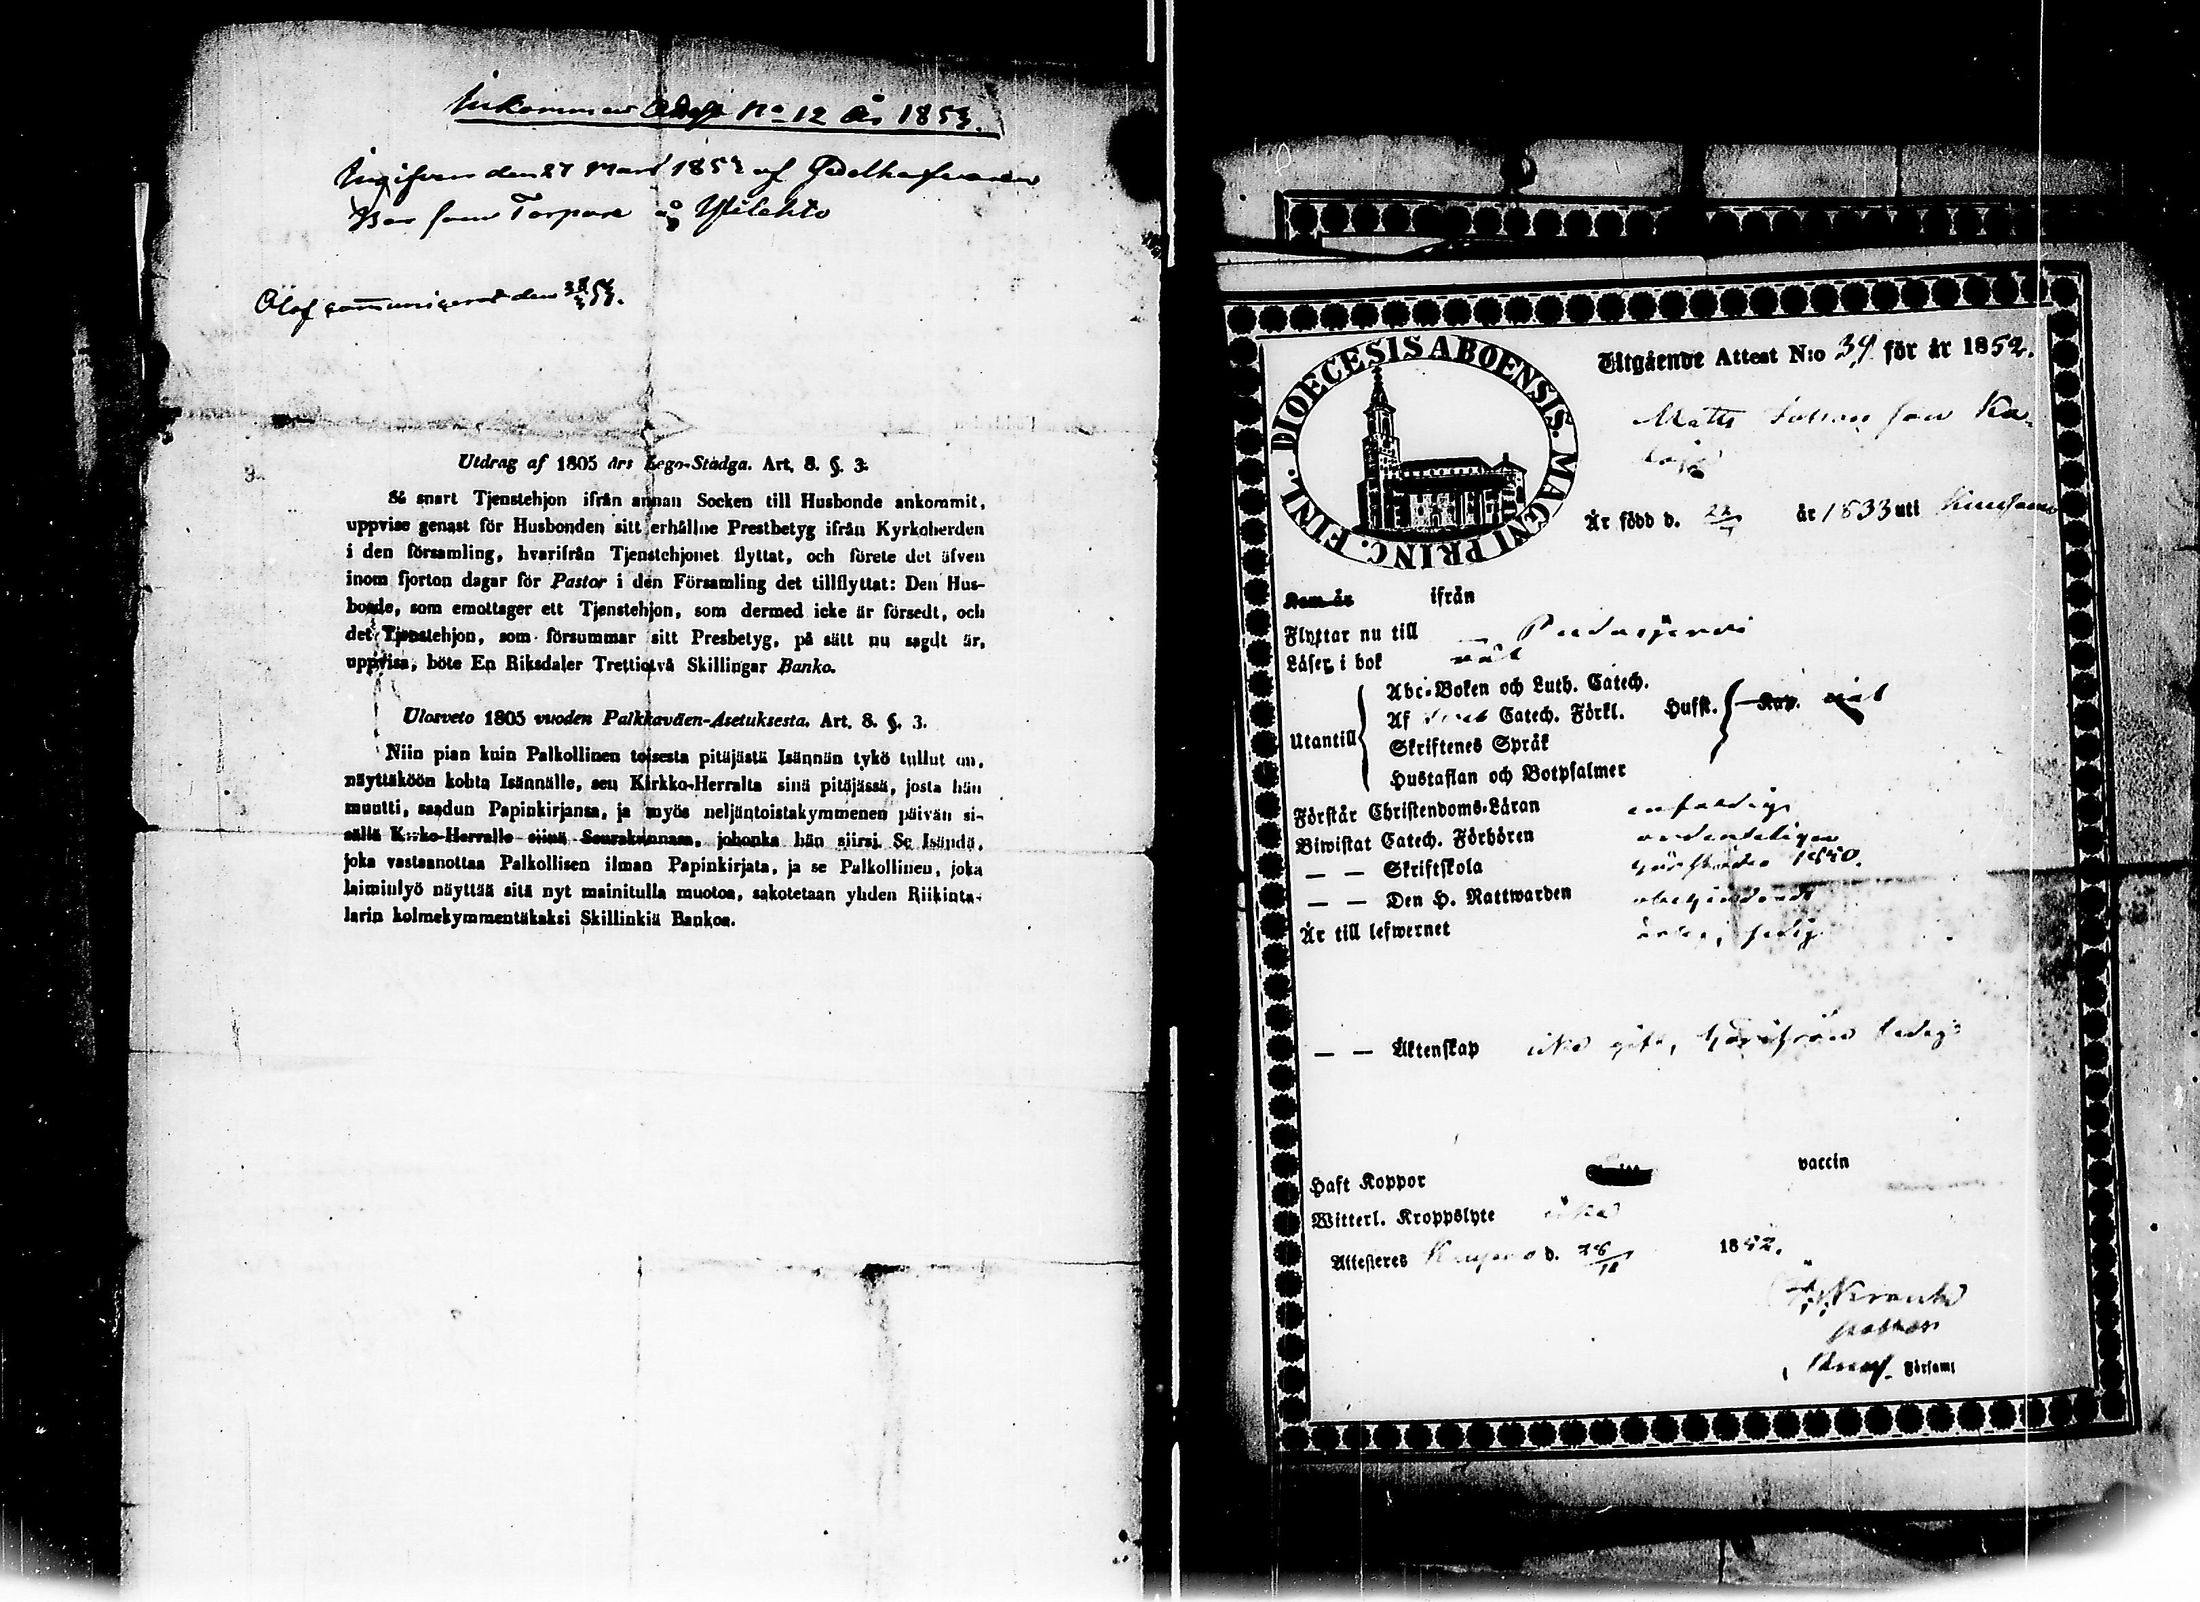 Inkommen Attest No 12 År 1853.
Ingifven den 27 Mars 1853 af
Bor som Torpare å Ylilehto
Olof communicerat den
3.
Utdrag af 1805 års Lego-Stadga. Art. 8. §. 3.
Så snart Tjenstehjon ifrån annan Socken till Husbonde ankommit,
uppvise genast för Husbonden sitt erhållne Prestbetyg ifrån Kyrkoherden
i den församling, hvarifrån Tjenstehjonet flyttat, och förete det äfven
inom fjorton dagar för Pastor i den Församling det tillflyttat: Den Hus-
bonde, som emottager ett Tjenstehjon, som dermed icke är försedt, och
det Tjenstehjon, som försummar sitt Presbetyg, på sätt nu sagdt är,
uppvisa, böte En Riksdaler Trettiotvå Skillingar Banko.
Ulosveto 1805 vuoden Palkkaväen-Asetuksesta. Art. 8. §. 3.
Niin pian kuin Palkollinen toisesta pitäjästä Isännän tykö tullut on,
näyttäköön kohta Isännälle, sen Kirkko-Herralta sinä pitäjässä, josta hän
muutti, saadun Papinkirjansa, ja myös neljäntoistakymmenen päivän si-
sällä Kirkko-Herralle siinä Seurakunnassa, johonka hän siirsi. Se Isändä,
joka vastaanottaa Palkollisen ilman Papinkirjata, ja se Palkollinen, joka
laiminlyö näyttää sitä nyt mainitulla muotoa, sakotetaan yhden Riikinta-
larin kolmekymmentäkaksi Skillinkiä Bankoa.
DIOECESIS ABOENSIS. MAGNI PRINC. FINL.
Utgående Attest N:o 34 för år 1852.
Matts Johansson
Är född d. år 1833 uti Kuusamo
Kom år ifrån
Flyttar nu till Pudasjärvi
Läser i bok väl
Utantill Abc-Boken och Luth. Catech.
Af Catech. Förkl. Hufst. Kap. väl
Skriftenes Språk
Hustaflan och Botpsalmer
Förstår Christendoms-Läran enfaldigt
Biwistat Catech. Förhören ordenteligen
— — Skriftskola 1850.
— — Den H. Nattwarden obehindradt
Är till lefwernet ledig
— — Äktenskap icke gift, härifrån ledig
Haft Koppor vaccin
Witterl. Kroppslyte icke
Attesteres Kuusamo d. 1852.
pastor
Kuus. Församl